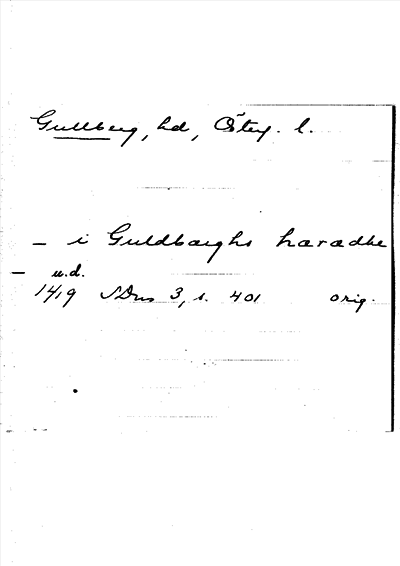 Gullberg, hd, Österg. l.
– i Guldbærghs haradhe
– u.d.
1419 SDns 3, s. 401 orig.